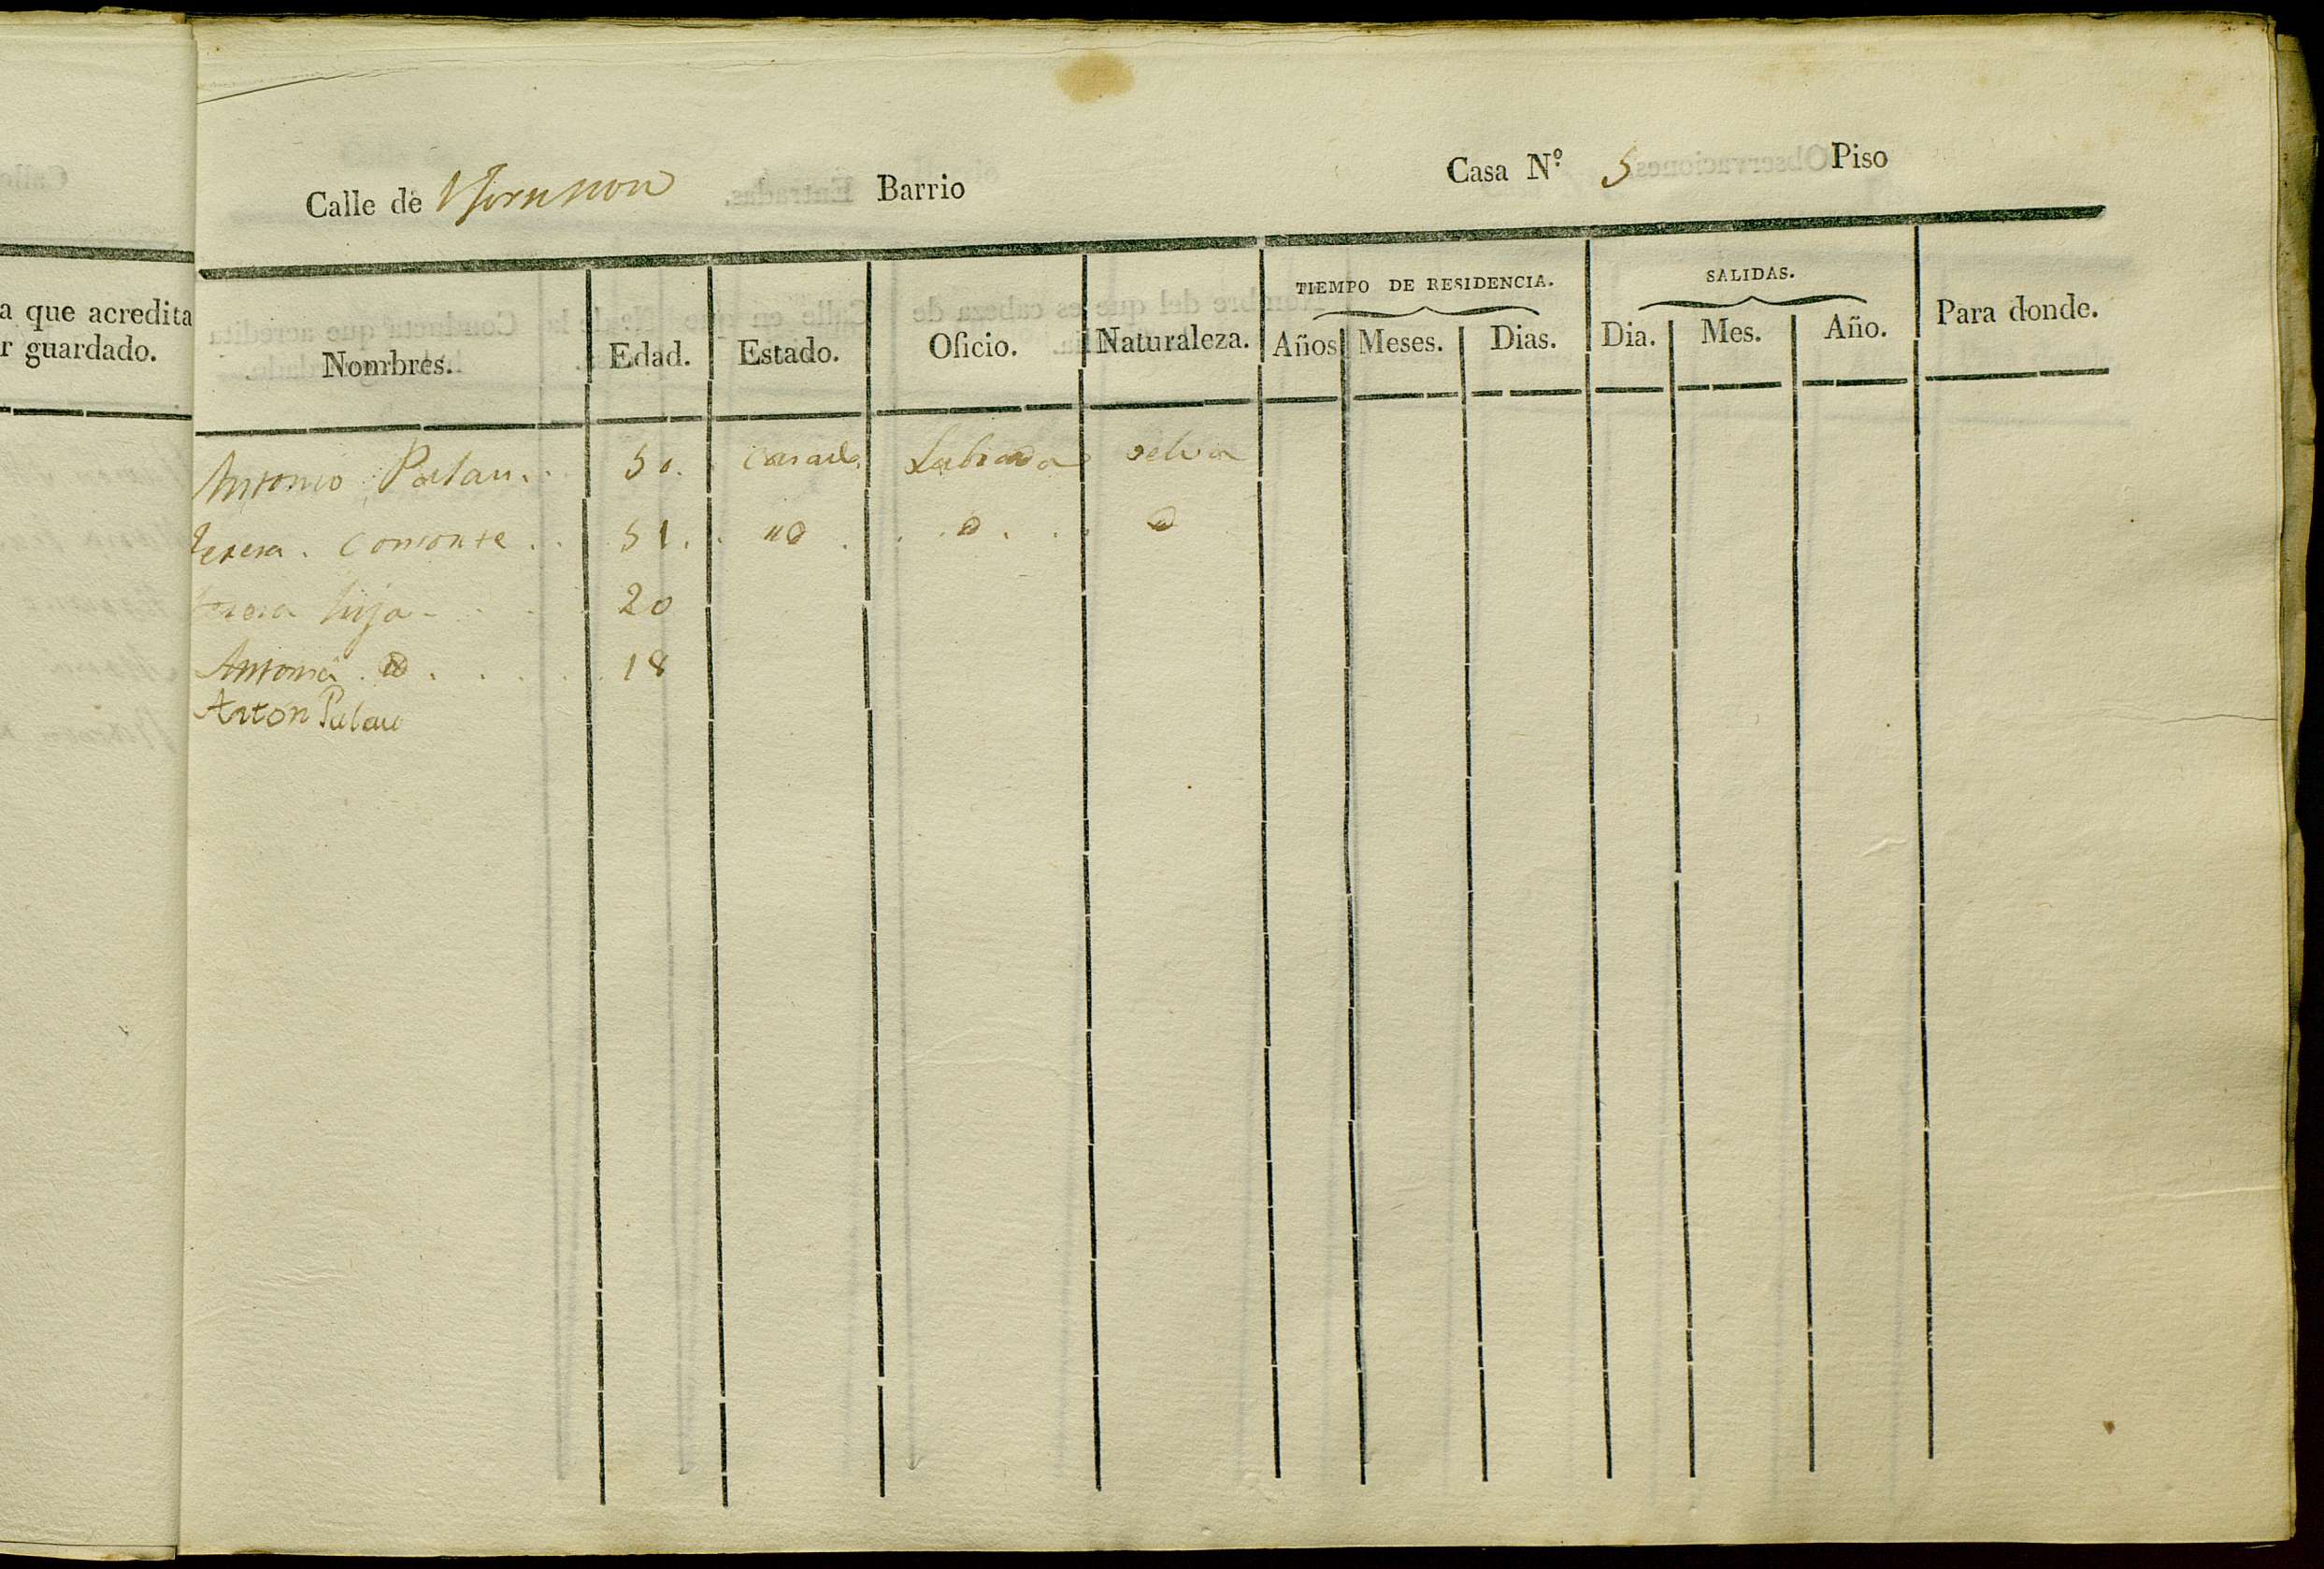 a que acredita
r guardado.
Calle de Barrio Casa N.º 5 Piso
TIEMPO DE RESIDENCIA. SALIDAS.
Nombres. Edad. Estado. Oficio. Naturaleza. Años Meses. Dias. Dia. Mes. Año. Para donde.
Antonio Palau. 50. Casado Labrador selva
Teresa. Consorte. 51. id. id. id
teresa hija 20
Antonia. id. 18
Anton Palau